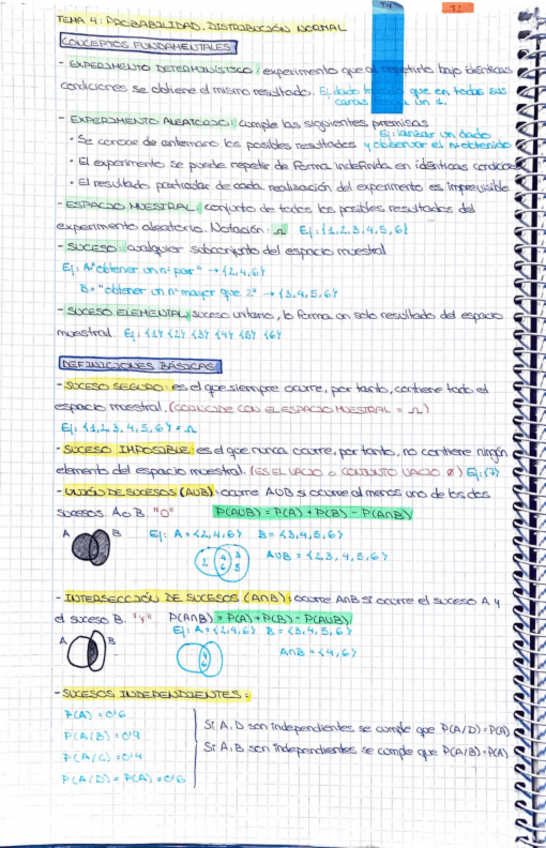 T4
T2
TEMA 4: PROBABILIDAD. DISTRIBUCIÓN NORMAL
CONCEPTOS FUNDAMENTALES
- EXPERIMENTO DETERMINÍSTICO: experimento que al repetirlo bajo idénticas
condiciones se obtiene el mismo resultado. Ej: dado que en todas sus
caras un 1.
- EXPERIMENTO ALEATORIO: cumple las siguientes premisas
Ej: lanzar un dado
· Se conoce de antemano los posibles resultados y observar el nº obtenido
· El experimento se puede repetir de forma indefinida en idénticas condicio
· El resultado particular de cada realización del experimento es imprevisible
- ESPACIO MUESTRAL: conjunto de todos los posibles resultados del
experimento aleatorio. Notación: Ω Ej: {1,2,3,4,5,6}
- SUCESO: cualquier subconjunto del espacio muestral
Ej: A="obtener un nº par" → {2,4,6}
B = "obtener un nº mayor que 2" → {3,4,5,6}
- SUCESO ELEMENTAL: suceso unitario, lo forma un solo resultado del espacio
muestral. Ej: {1} {2} {3} {4} {5} {6}
DEFINICIONES BÁSICAS
- SUCESO SEGURO: es el que siempre ocurre, por tanto, contiene todo el
espacio muestral. (COINCIDE CON EL ESPACIO MUESTRAL = Ω)
Ej: {1,2,3,4,5,6} = Ω
- SUCESO IMPOSIBLE: es el que nunca ocurre, por tanto, no contiene ningún
elemento del espacio muestral. (ES EL VACÍO o CONJUNTO VACÍO Ø) Ej: {7}
- UNIÓN DE SUCESOS (AUB): ocurre AUB si ocurre al menos uno de los dos
sucesos A o B. "O" P(AUB) = P(A) + P(B) - P(A∩B)
A B Ej: A = {2,4,6} B = {3,4,5,6}
2 4 6 3 5 AUB = {2,3,4,5,6}
- INTERSECCIÓN DE SUCESOS (A∩B): ocurre A∩B si ocurre el suceso A y
el suceso B. "y" P(A∩B) = P(A) + P(B) - P(AUB)
A B Ej: A = {2,4,6} B = {3,4,5,6}
4 6 A∩B = {4,6}
- SUCESOS INDEPENDIENTES:
P(A) = 0'6
P(A/B) = 0'9
P(A/C) = 0'4
P(A/D) = P(A) = 0'6
Si A, D son independientes se cumple que P(A/D) = P(A)
Si A, B son independientes se cumple que P(A/B) = P(A)